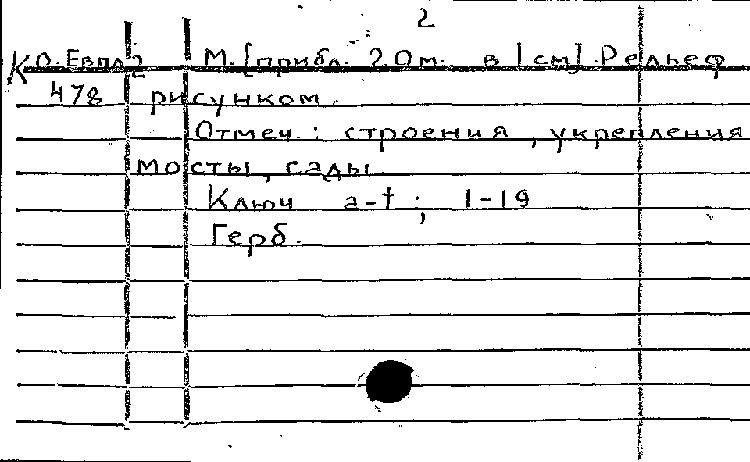 2
К О. Евпл 2 М. [прибл. 20м. в 1 см]. Рельеф
478 рисунком.
Отмеч.: строения, укрепления
мосты, сады.
Ключ a-t; 1-19
Герб.